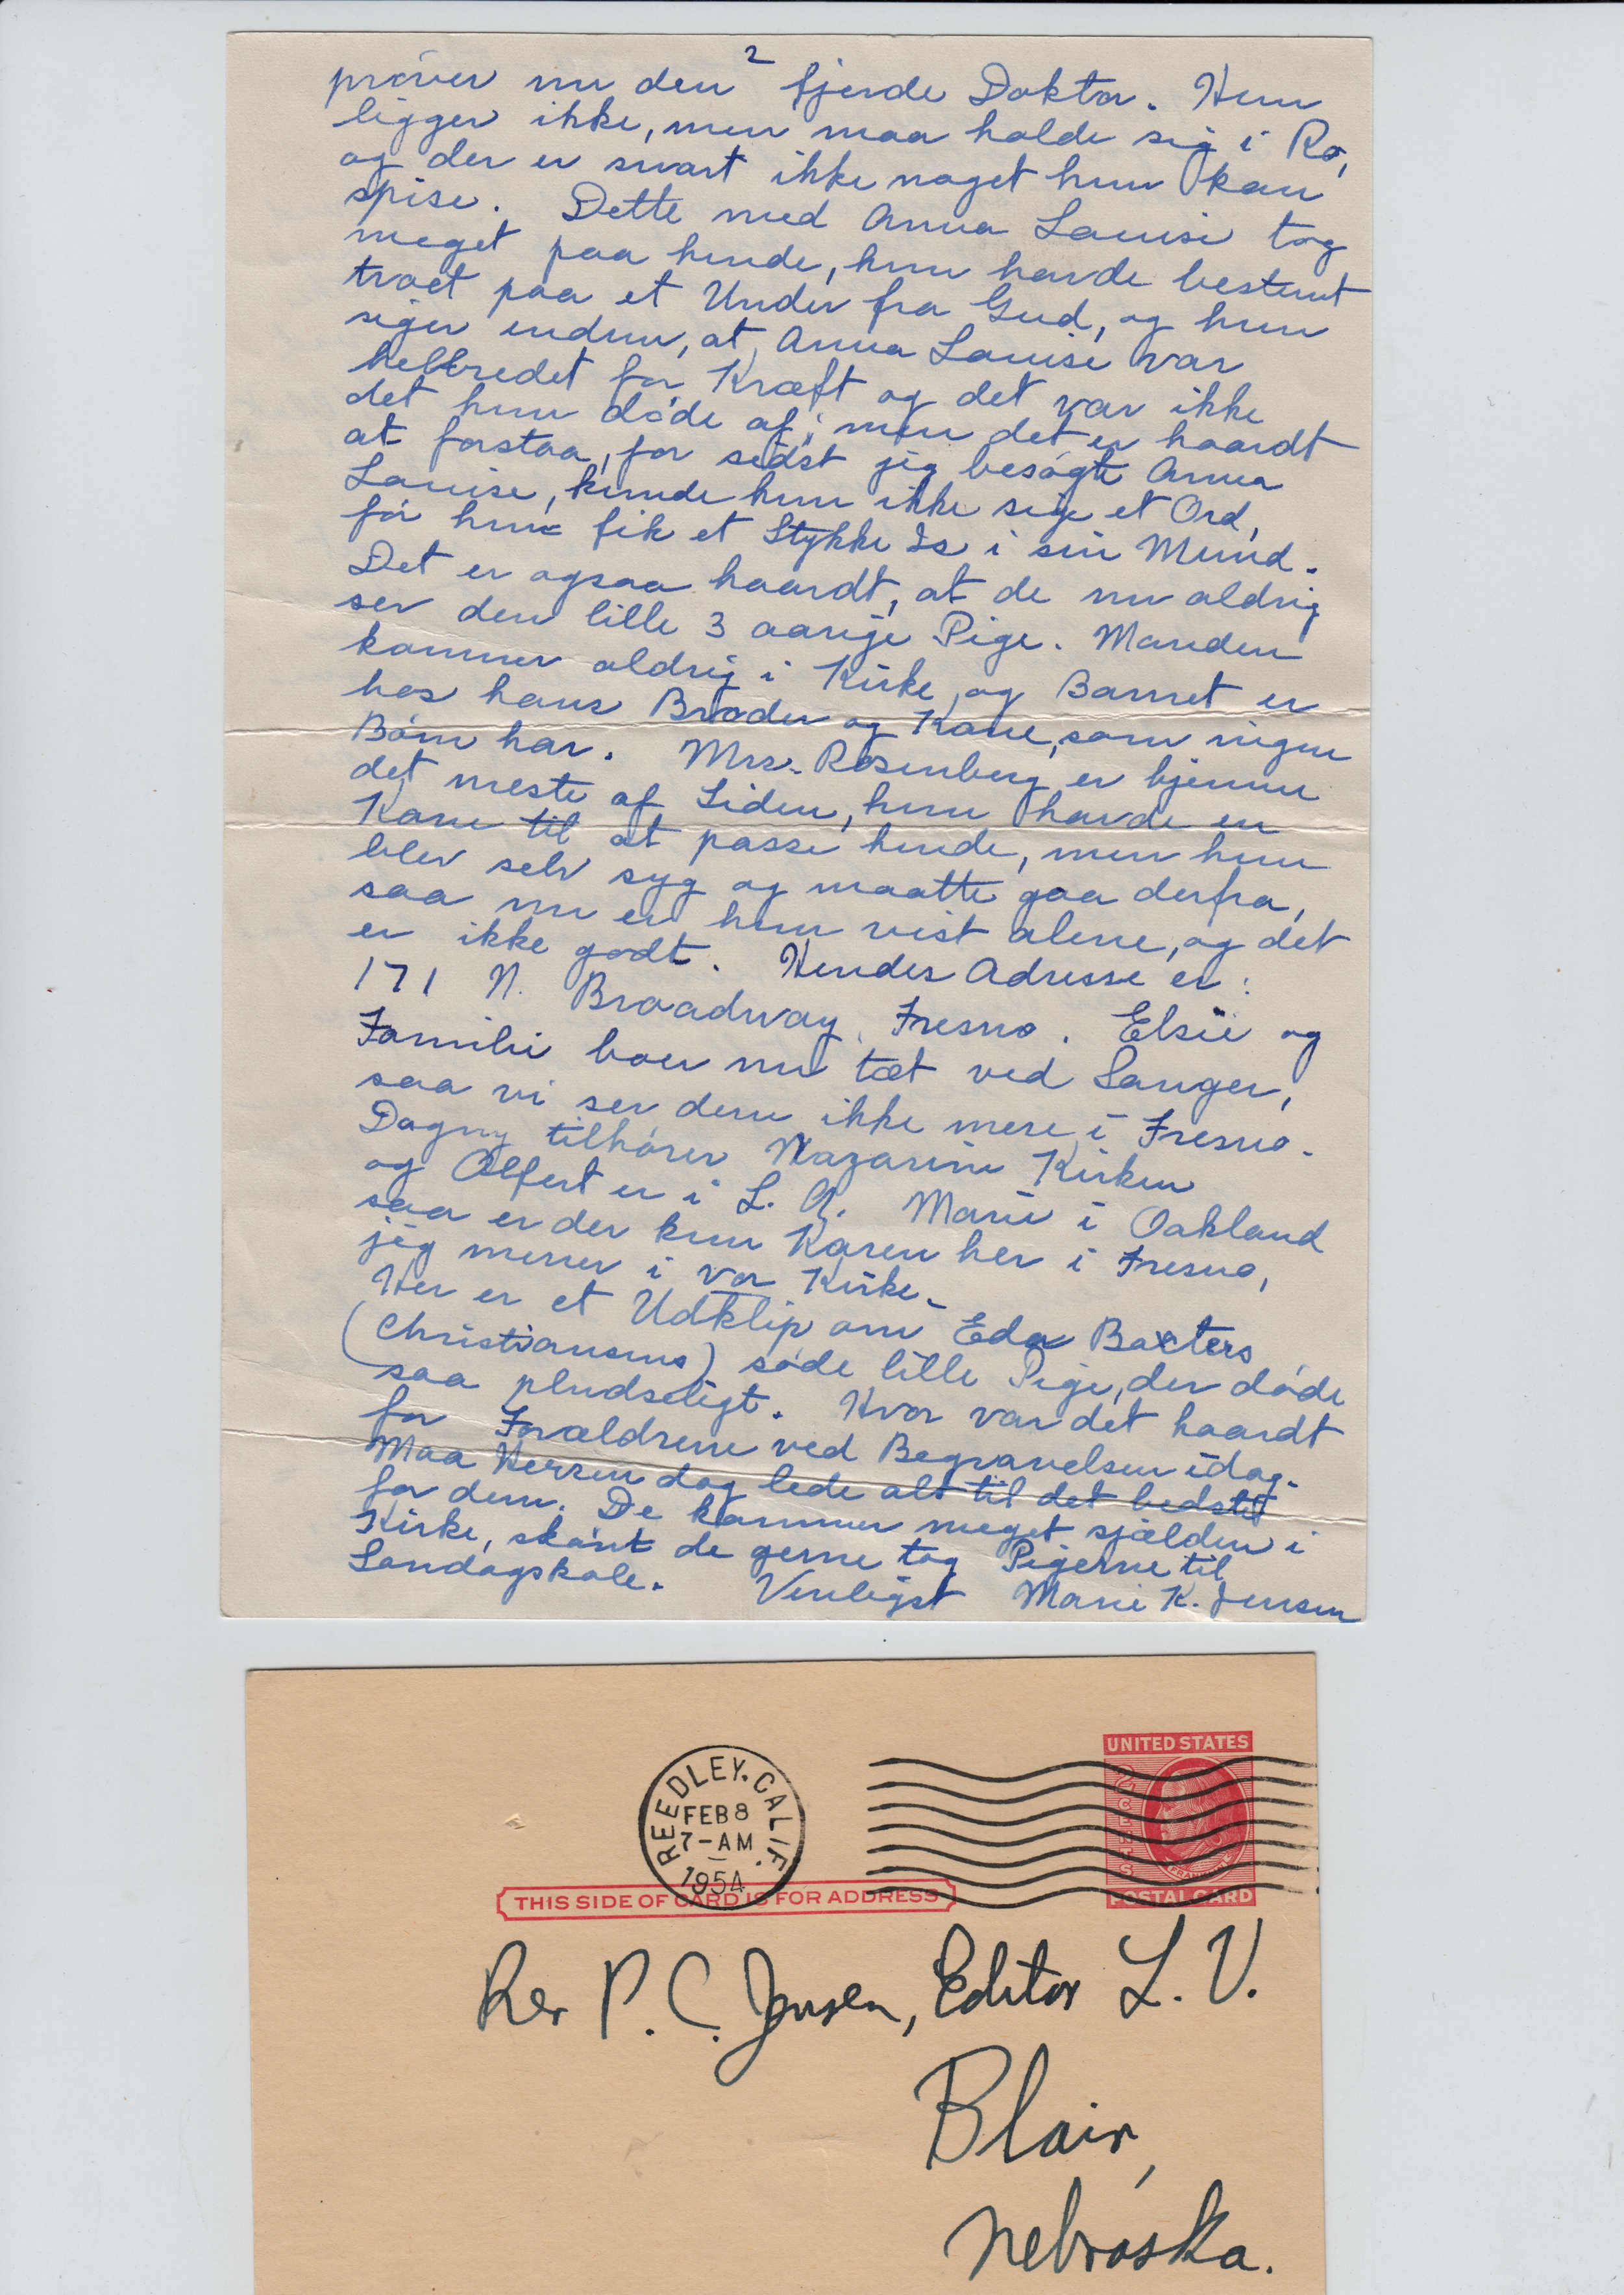 2
prøver nu den fjerde Doktor. Hun
ligger ikke, men maa holde sig i Ro,
og der er svart ikke noget hun kan
spise. Dette med Anna Louise tog
meget paa hende, hun havde bestemt
troet paa et Under fra Gud, og hun
siger endnu, at Anna Louise var
helbredet for Kræft og det var ikke
det hun døde af; men det er haardt
at forstaa, for sidst jeg besøgte Anna
Louise, kunde hun ikke sige et Ord,
før hun fik et Stykke Is i sin Mund.
Det er ogsaa haardt, at de nu aldrig
ser den lille 3 aarige Pige. Manden
kommer aldrig i Kirke, og Barnet er
hos hans Broder og Kone, som ingen
Børn har. Mrs. Rosenberg er hjemme
det meste af Tiden, hun havde en
Kone til at passe hende, men hun
blev selv syg og maatte gaa derfra,
saa nu er hun vist alene, og det
er ikke godt. Hendes Adresse er:
171 N. Broadway, Fresno. Elsie og
Familie boer nu tæt ved Sanger,
saa vi ser dem ikke mere i Fresno.
Dagny tilhører Nazarene Kirken
og Alfert er i L. A. Marie i Oakland
saa er der kun Karen her i Fresno,
jeg mener i vor Kirke.
Her er et Udklip om Eda Baxters
(Christiansens) søde lille Pige, der døde
saa pludseligt. Hvor var det haardt
for Forældrene ved Begravelsen idag.
Maa Herren dog lede alt til det bedste
for dem. De kommer meget sjælden i
Kirke, skønt de gerne tog Pigerne til
Søndagskole. Venligst Marie K. Jensen
UNITED STATES
2 CENTS
FRANKLIN
POSTAL CARD
REEDLEY, CALIF.
FEB 8
7-AM
1954
THIS SIDE OF CARD IS FOR ADDRESS
Rev P. C. Jensen, Editor L. V.
Blair,
Nebraska.